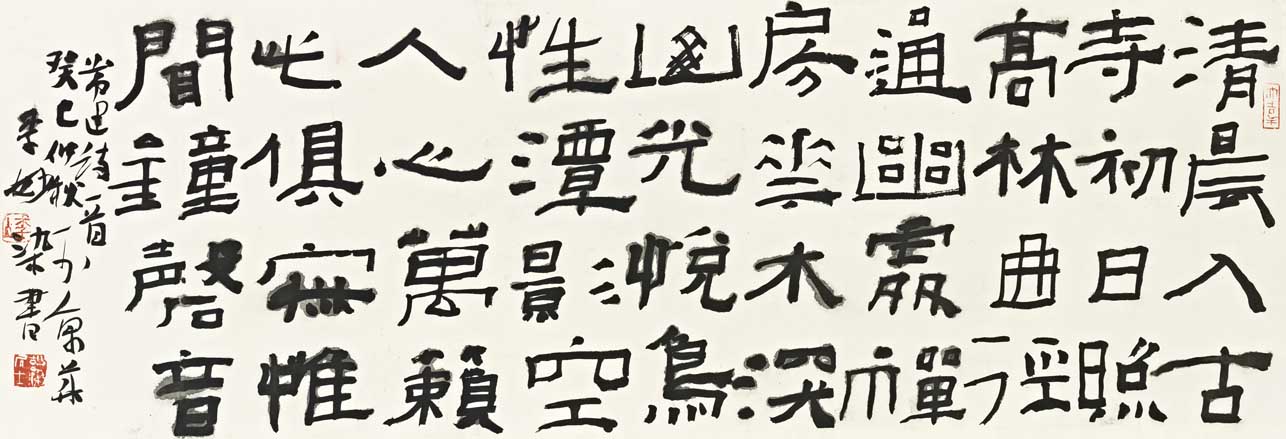 清晨入古
寺初日照
高林曲徑
通幽處禪
房花木深
山光悅鳥
性潭影空
人心萬籟
此俱寂惟
聞鐘磬音
常建詩一首
癸巳仲秋
李
染書